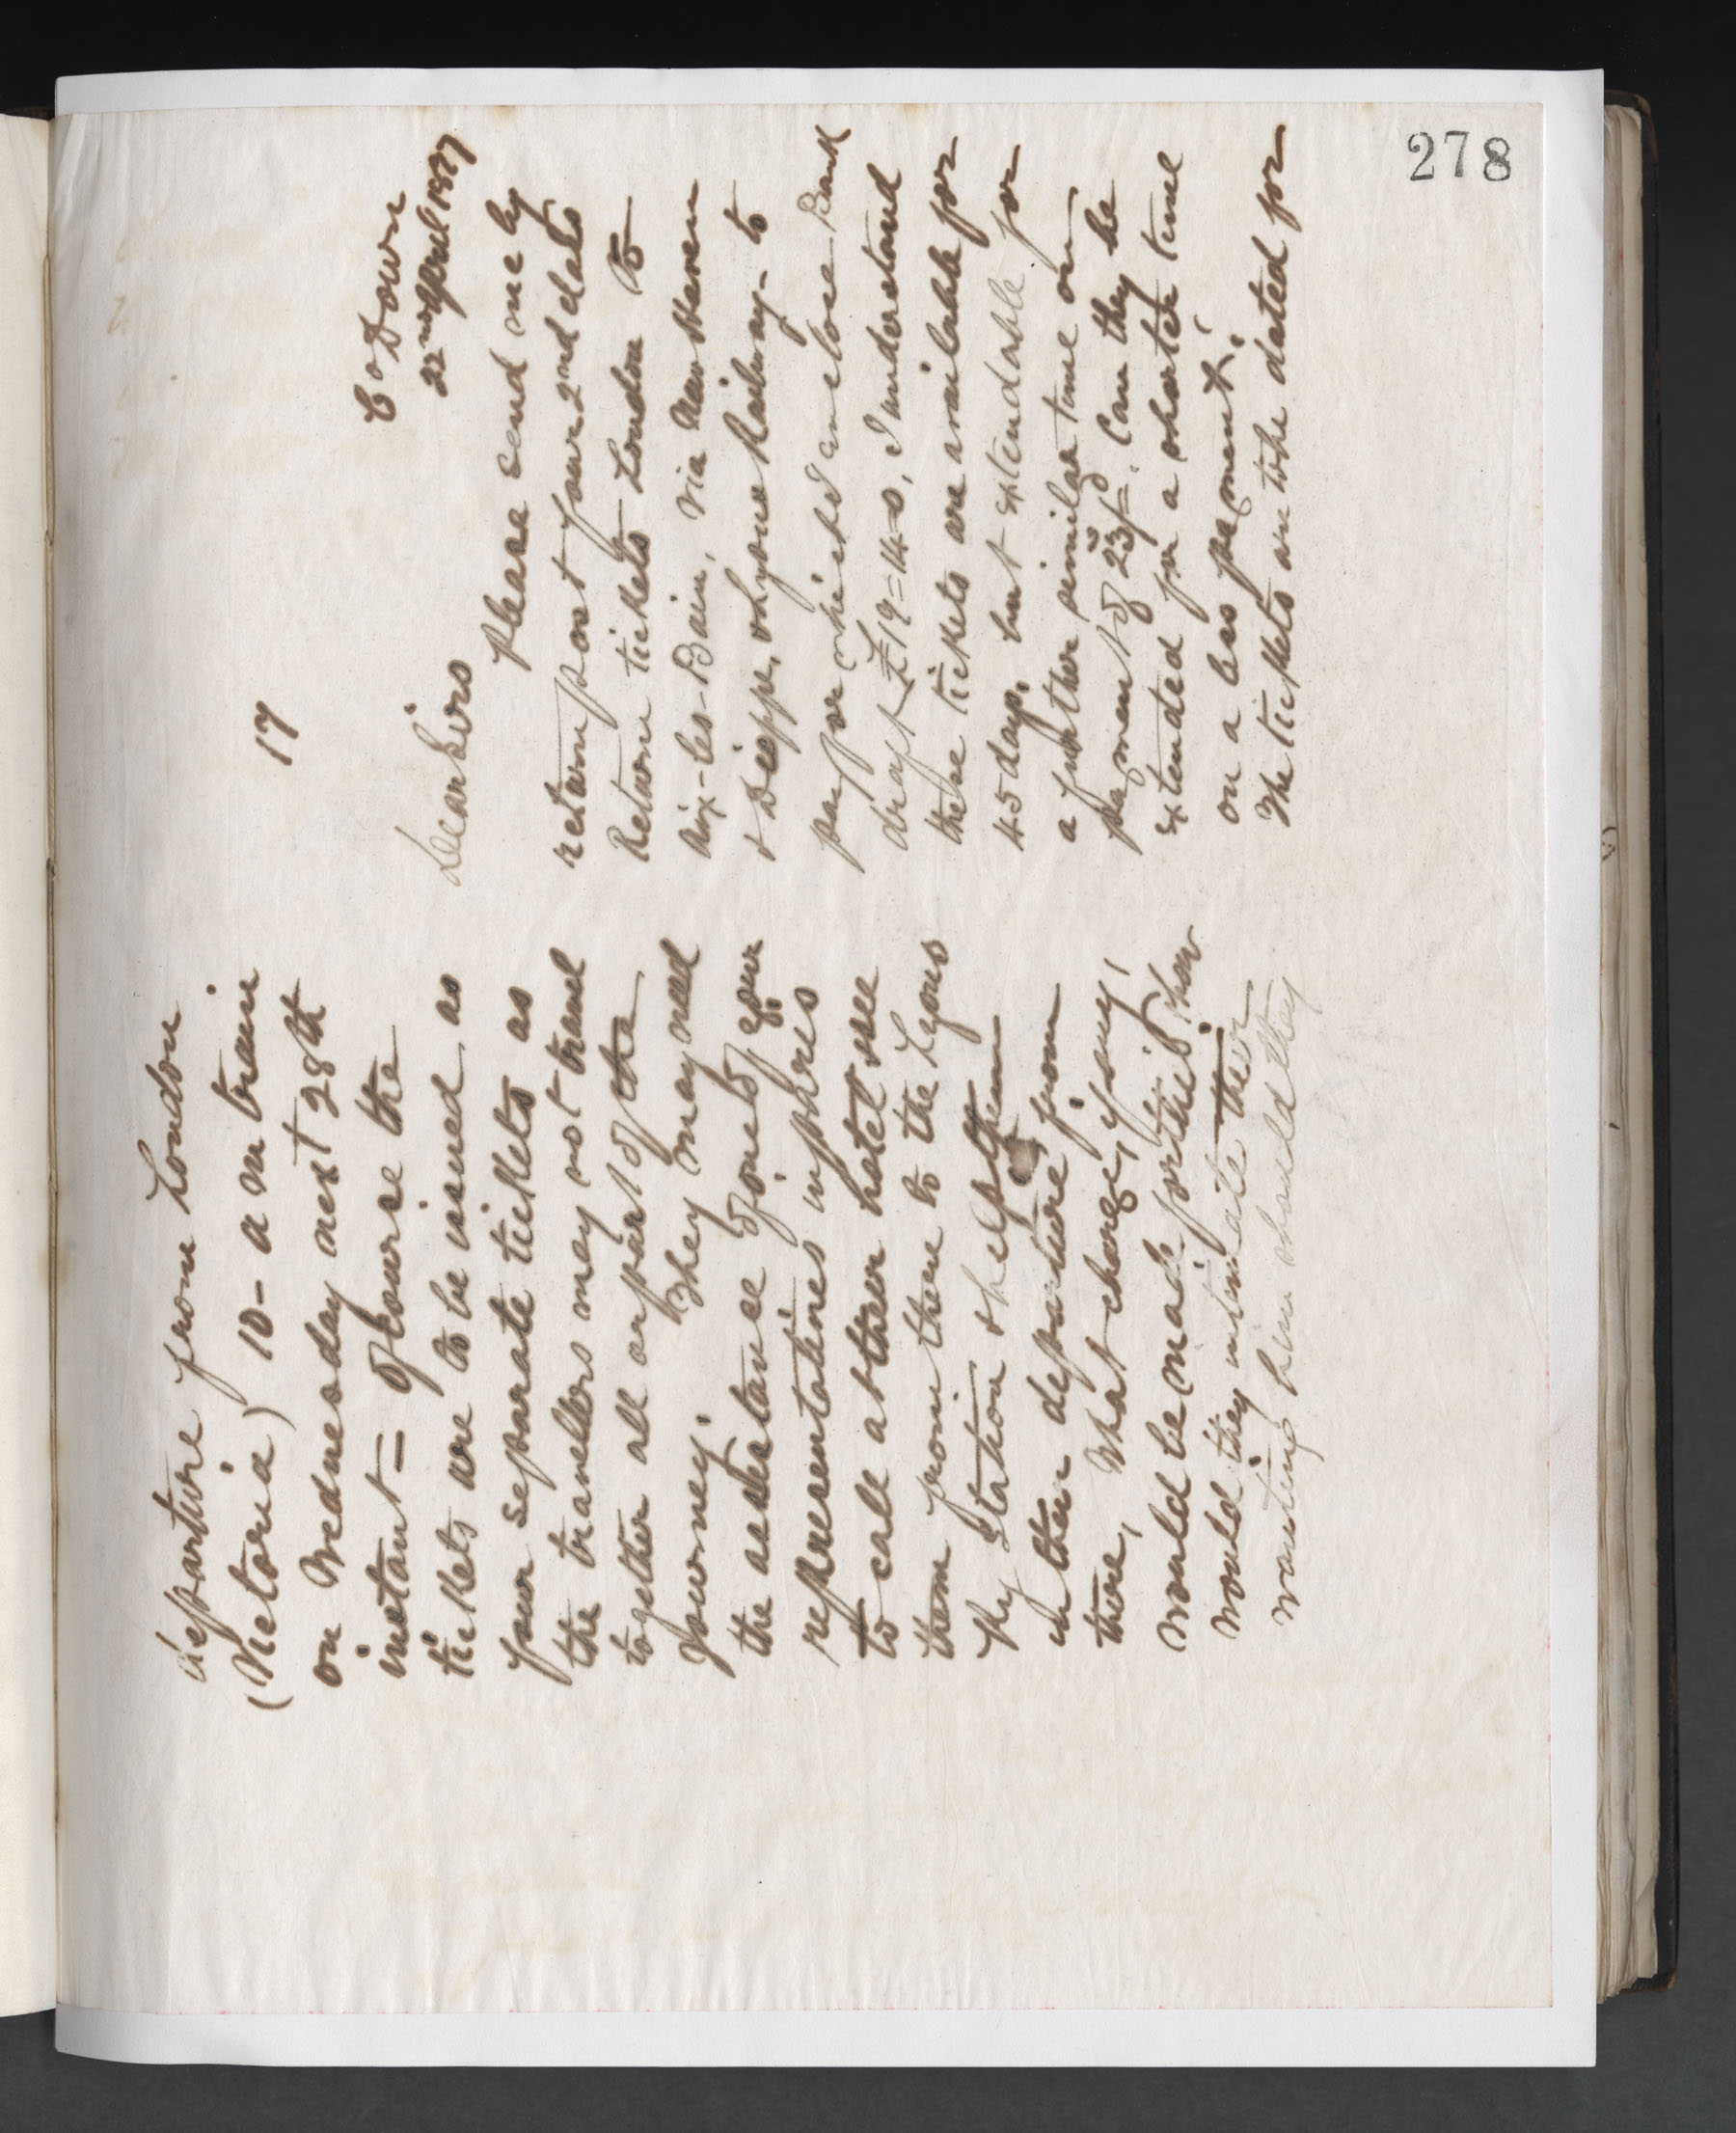 278
17
Co Down
22nd April 1897
Dear Sirs
Please send me by
return post four 2nd class
Return tickets London to
Aix-les-Bain, via New Haven
& Dieppe,
pay for which I enclose Bank
draft £19=14=0, I understand
these tickets are available for
45 days, but extendable for
a further similar time on
payment of 23/=. Can they be
extended for a shorter time
on a less payment.
The tickets are to be dated for
departure from London
(Victoria) 10- a m train
on Wednesday next 28th
instant = Of course the
tickets are to be issued as
four separate tickets as
the travellers may not travel
together all or part of the
Journey. They may need
the assistance of one of your
representatives in Paris
to call at their hotel see
them from there to the Lyons
Ry Station & help them
in their departure from
there, What charge, if any,
would be made for this & how
would they intimate their
wanting him should they